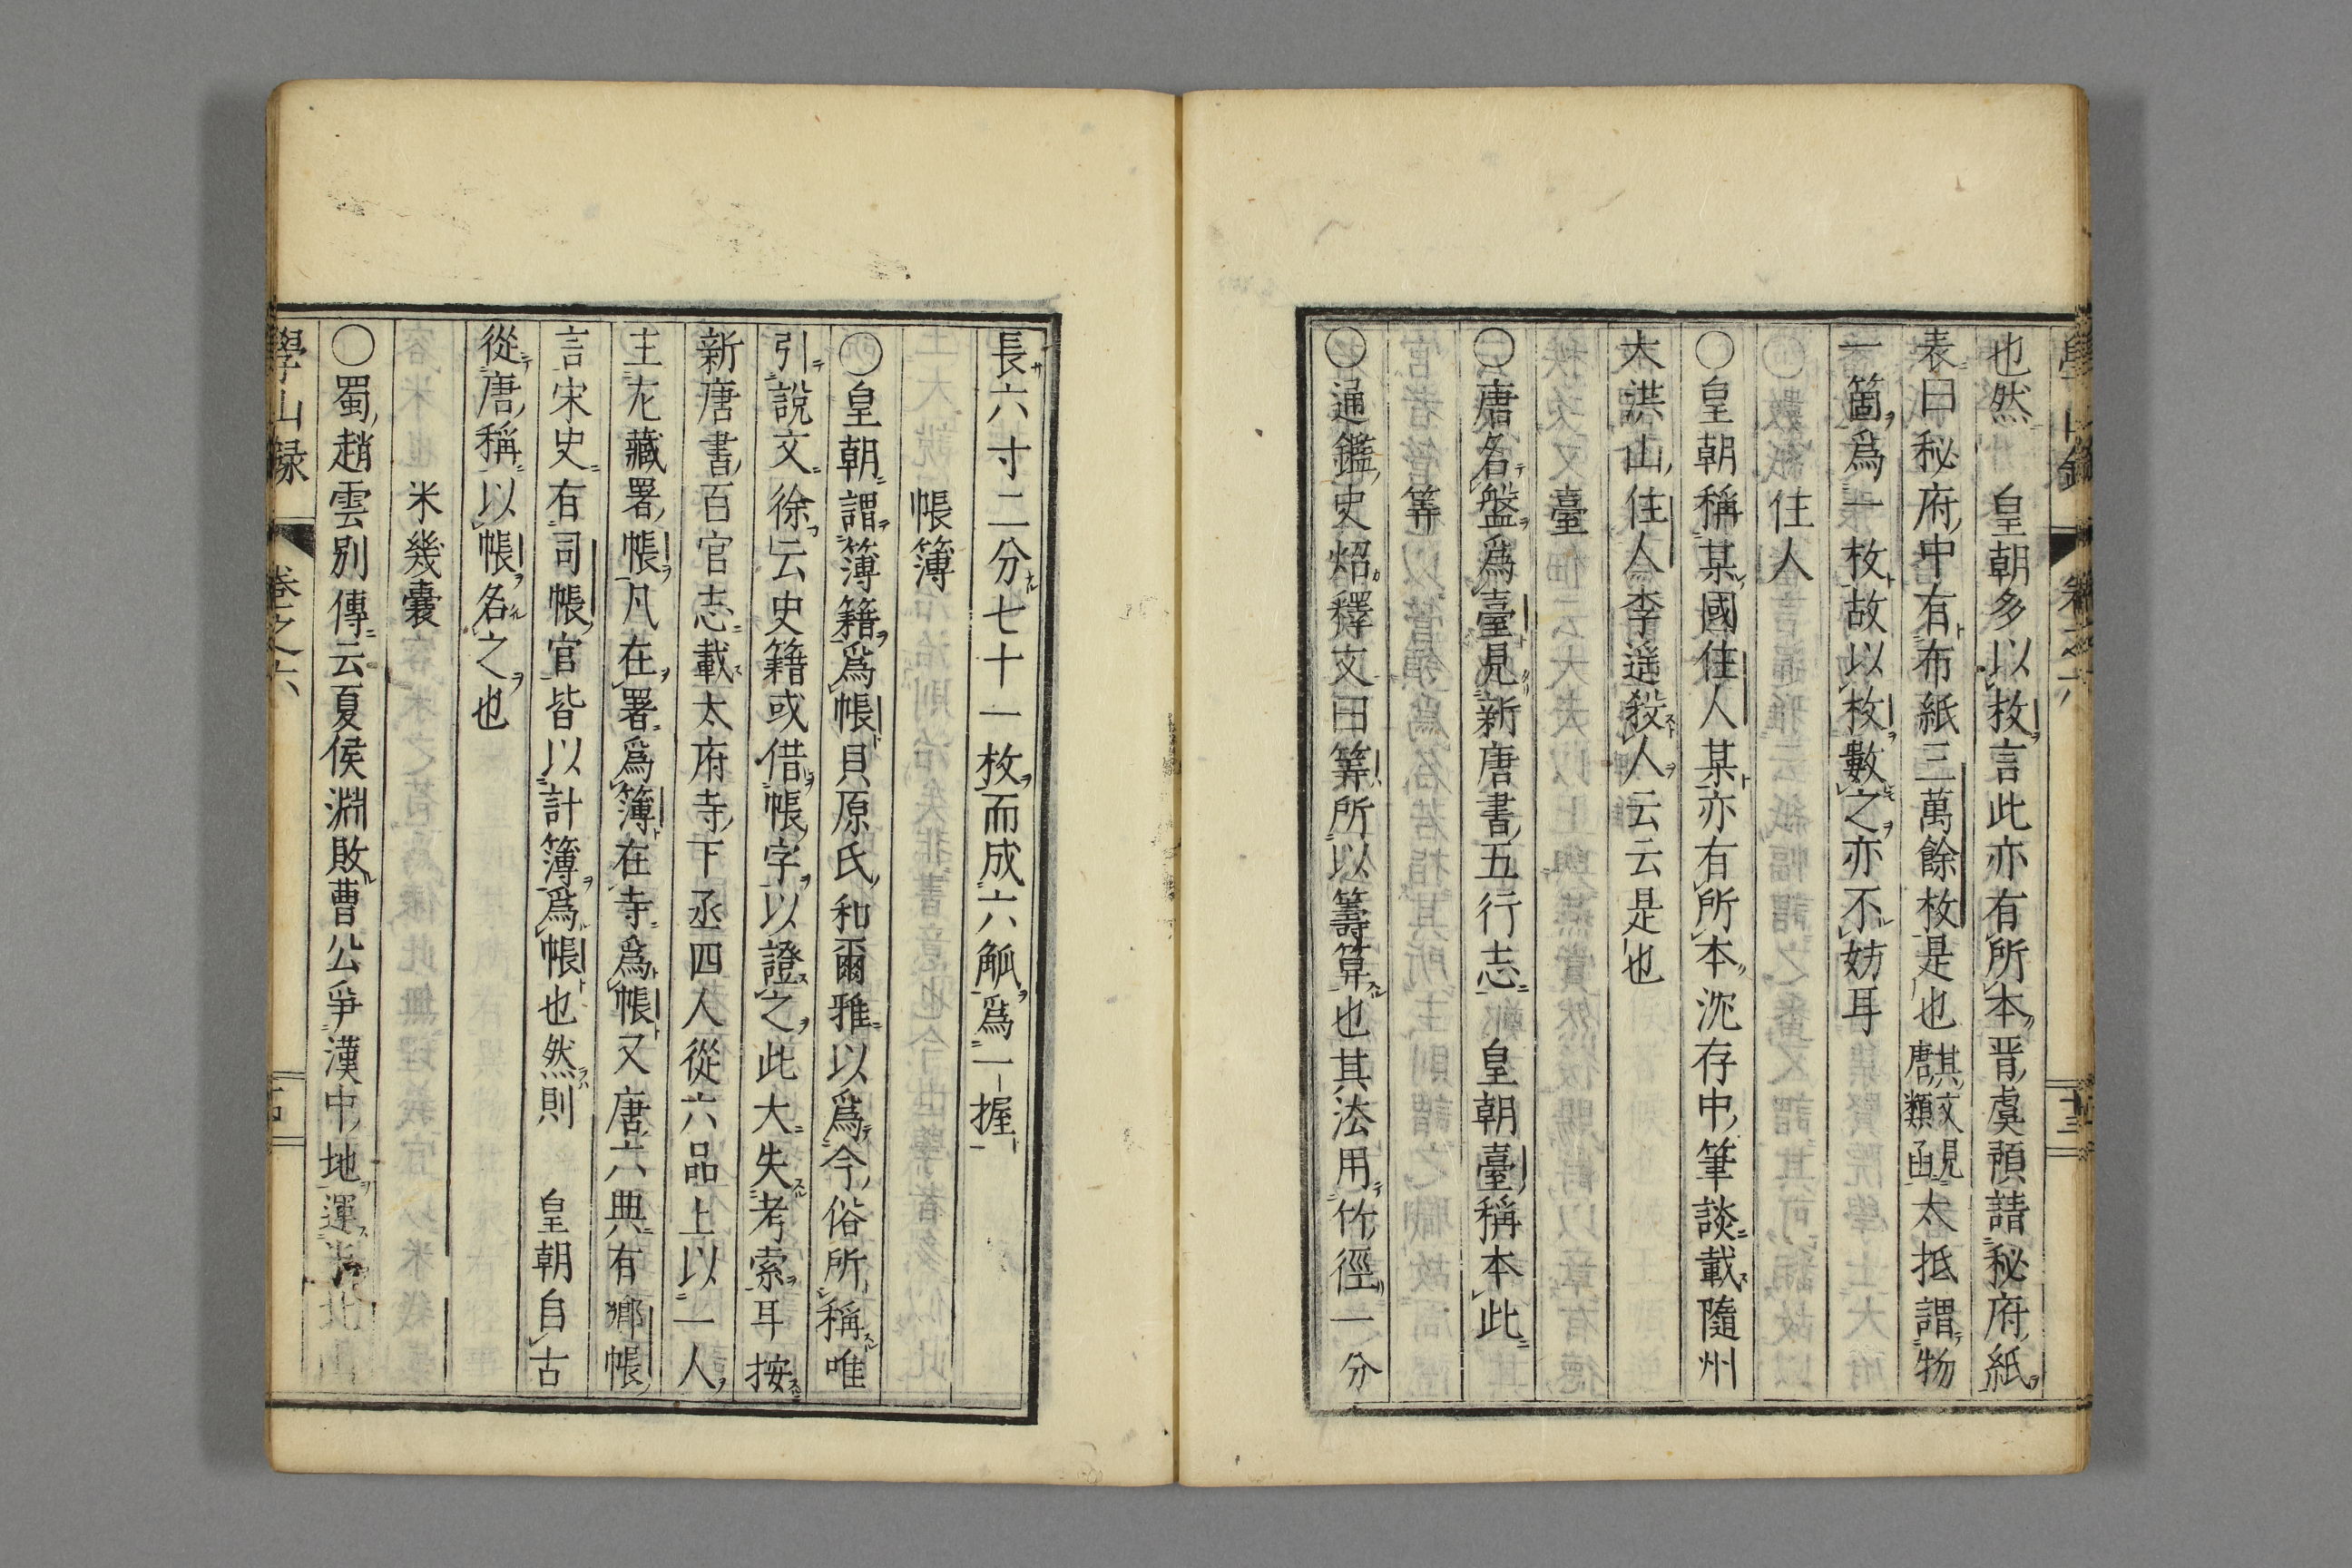 也然　皇朝多以枚言此亦有所本晋虞預請秘府紙
表曰秘府中有布紙三萬餘枚是也其文見唐類函太抵謂物
一箇爲一枚故以枚數之亦不妨耳
住人
〇皇朝稱某國住人某亦有所本沈存中筆談載隨州
大洪山住人李遥殺人云云是也
臺
〇唐名盤爲臺見新唐書五行志　皇朝臺稱本此
筭
〇通鑑史炤釋文曰筭所以籌算也其法用竹徑一分
長六寸二分七十一枚而成六觚爲一握
帳簿
〇皇朝謂簿籍爲帳貝原氏和爾雅以爲今俗所稱唯
引說文徐云史籍或借帳字以證之此大失考索耳按
新唐書百官志載太府寺下丞四人從六品上以一人
主左藏署帳凡在署爲簿在寺爲帳又唐六典有鄉帳
言宋史有司帳官皆以計簿爲帳也然則　皇朝自古
從唐稱以帳名之也
米幾囊
〇蜀趙雲別傳云夏侯淵敗曹公爭漢中地運米北
學山録　卷之六